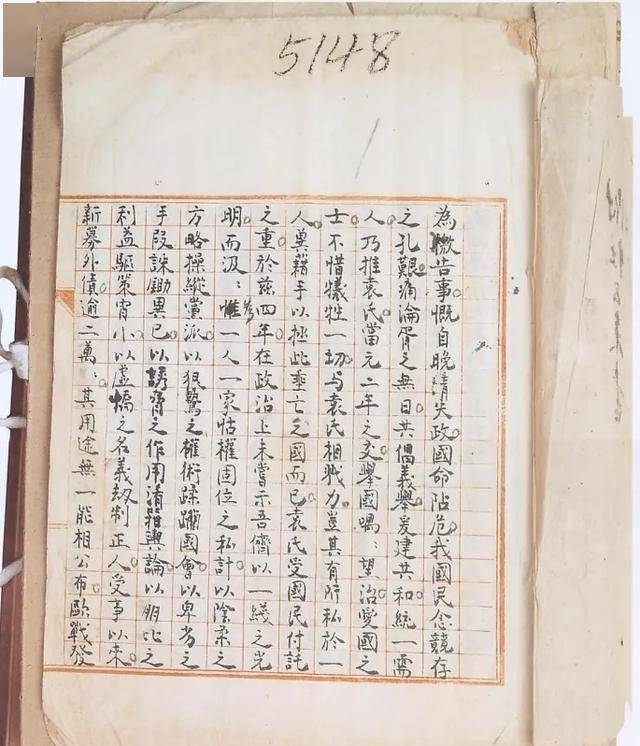 5148
為檄告事慨自晚清失政國命阽危我國民念競存
之孔艱痛淪胥之無日共倡義舉爰建共和統一需
人乃推袁氏當元二年之交舉國喁：望治愛國之
士不惜犧牲一切与袁氏相戮力豈其有所私於一
人冀藉手以拯此垂亡之國而已袁氏受國民付託
之重於茲四年在政治上未嘗示吾儕以一綫之光
明而汲：惟為一人一家怙權固位之私計以陰柔之
方略操縱黨派以狠鷙之權術蹂躪國會以卑劣之
手段誅鋤異己以誘脅之作用淆雜輿論以朋比之
利益驅策宵小以虛憍之名義刼制正人受事以來
新募外債逾二萬：其用途無一能相公布歐戰發